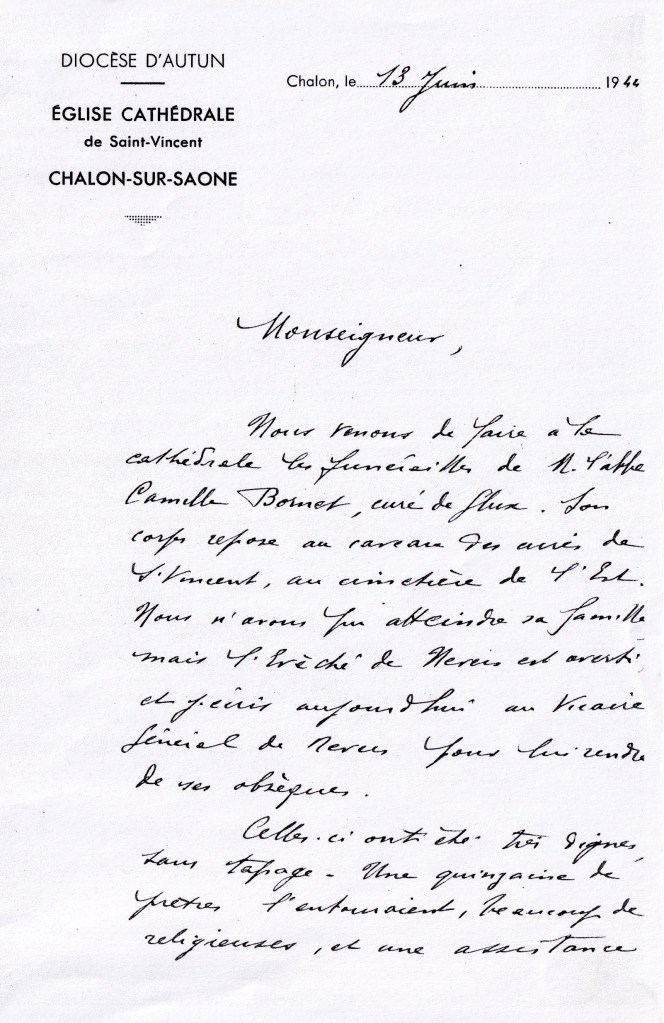 DIOCÈSE D'AUTUN
ÉGLISE CATHÉDRALE
de Saint-Vincent
CHALON-SUR-SAONE
Chalon, le 13 Juin 1944
Monseigneur,
Nous venons de faire à la
cathédrale les funérailles de M. l'abbé
Camille Bornet, curé de Glux. Son
corps repose au caveau des curés de
St Vincent, au cimetière de l'Est.
Nous n'avons pu atteindre sa famille
mais l'Evêché de Nevers est averti,
et j'écris aujourd'hui au Vicaire
Général de Nevers pour lui rendre
de ses obsèques.
Celles-ci ont été très dignes,
sans tapage - Une quinzaine de
prêtres l'entouraient, beaucoup de
religieuses, et une assistance